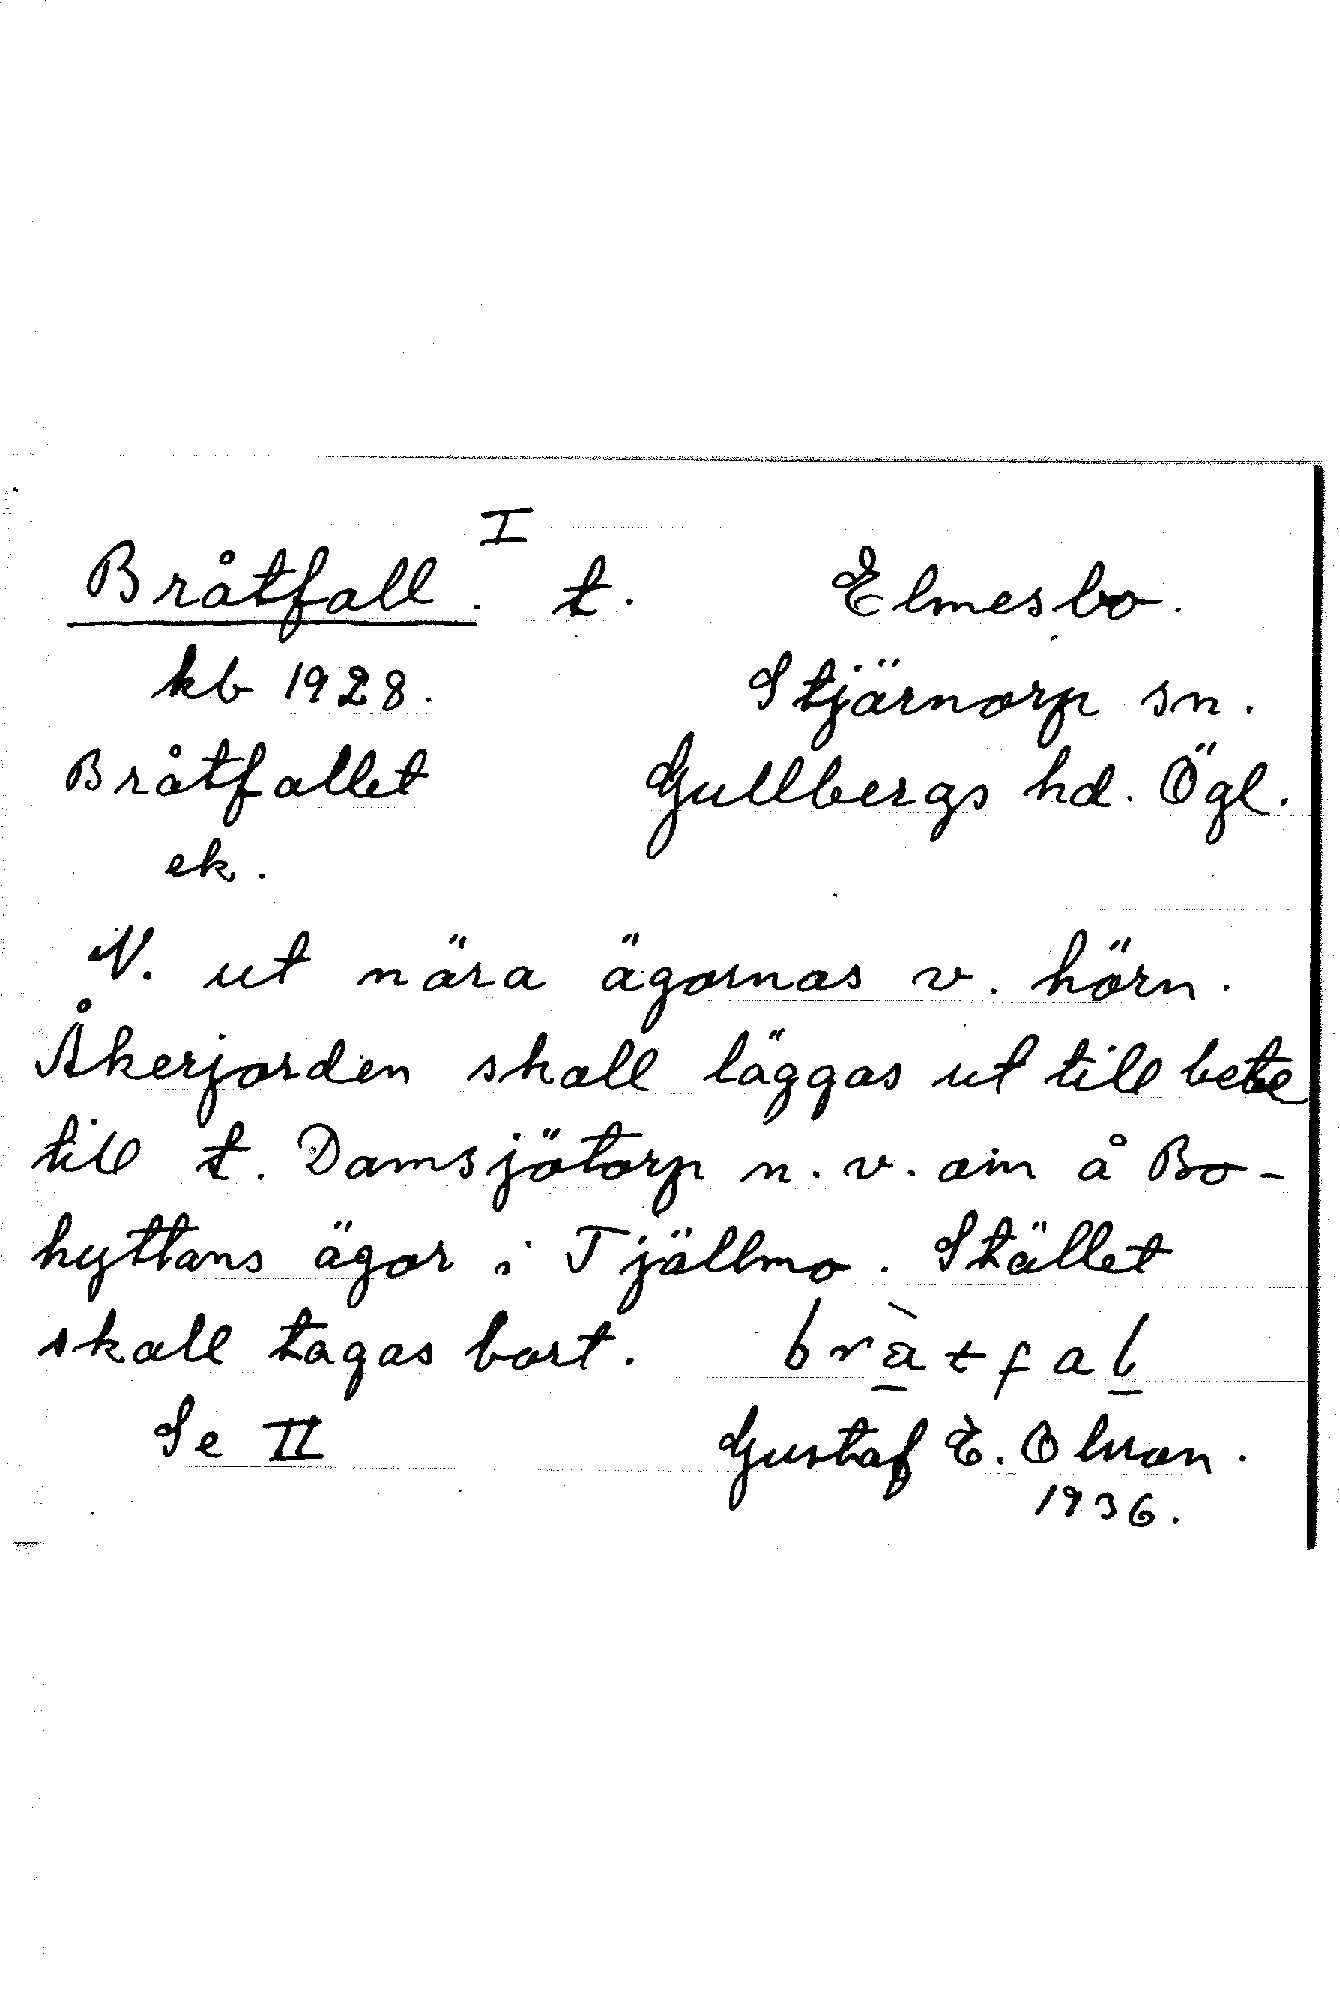 I
Bråtfall. t. Elmesbo.
kb 1928. Stjärnorp sn.
Bråtfallet Gullbergs hd. Ögl.
ek.
N. ut nära ägornas v. hörn.
Åkerjorden skall läggas ut till bete
till t. Damsjötorp n. v. om å Bo-
hyttans ägor i Tjällmo. Stället
skall tagas bort. bràtfal
Se II Gustaf E. Olson.
1936.